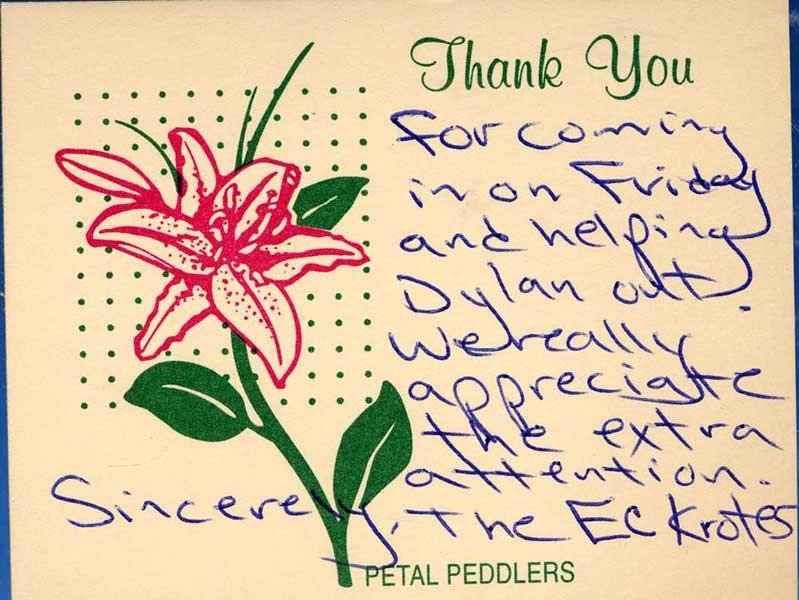 Thank You
for coming
in on Friday
and helping
Dylan out.
We really
appreciate
the extra
attention.
Sincerely, The Eckrotes
PETAL PEDDLERS